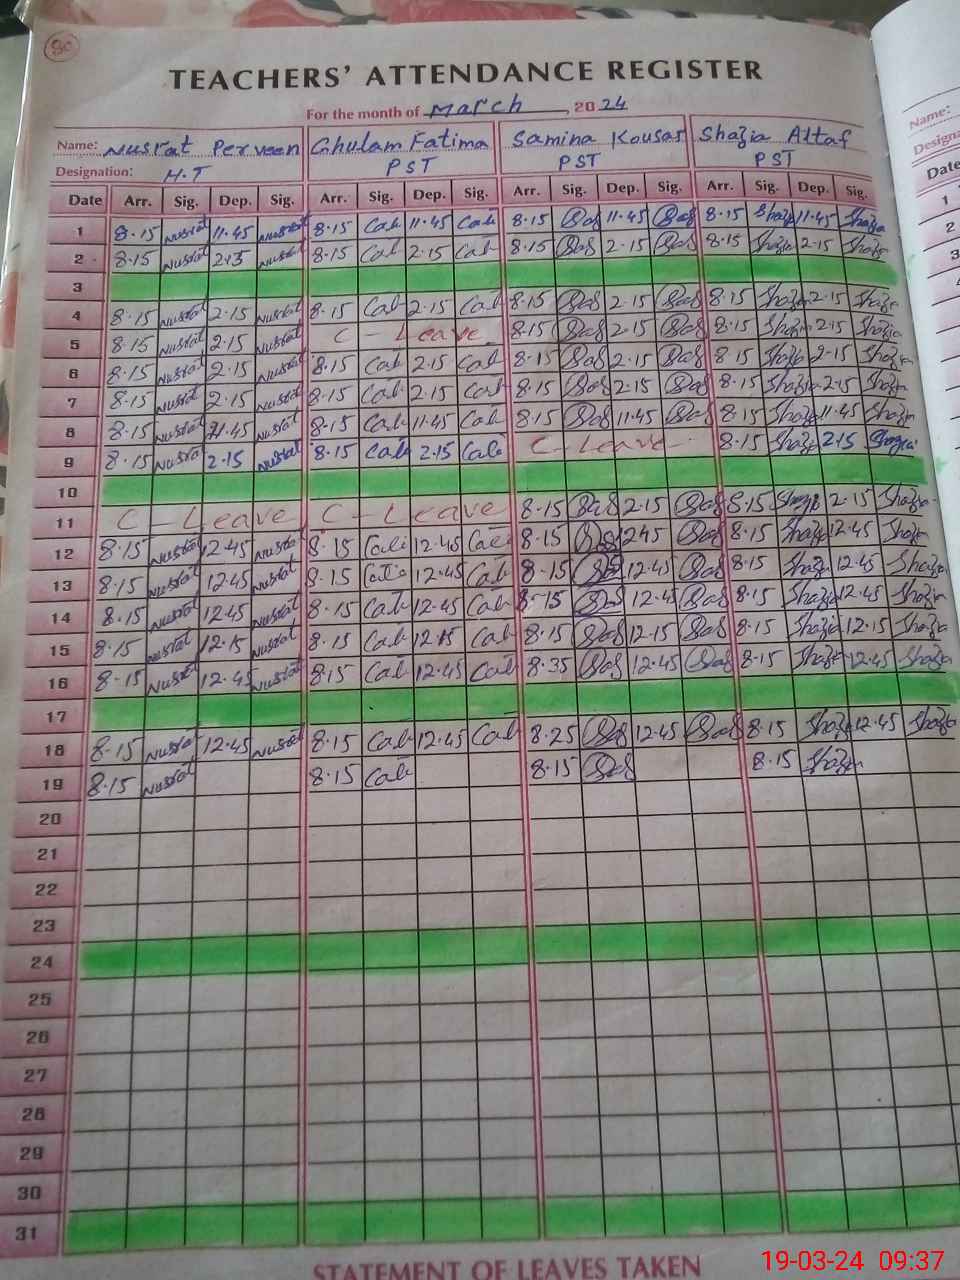 80
TEACHERS' ATTENDANCE REGISTER
For the month of March 2024
Name: Nusrat Perveen Ghulam Fatima Samina Kousar Shazia Altaf Name:
Designation: H.T PST PST PST
Date Arr. Sig. Dep. Sig. Arr. Sig. Dep. Sig. Arr. Sig. Dep. Sig. Arr. Sig. Dep. Sig. Date
1 8.15 Nusrat 11.45 Nusrat 8.15 11.45 8.15 11.45 8.15 Shazia 11.45 Shazia 1
2 8.15 Nusrat 2.15 Nusrat 8.15 2.15 8.15 2.15 8.15 Shazia 2.15 Shazia 2
3 3
4 8.15 Nusrat 2.15 Nusrat 8.15 2.15 8.15 2.15 8.15 Shazia 2.15 Shazia
5 8.15 Nusrat 2.15 Nusrat C - Leave 8.15 2.15 8.15 Shazia 2.15 Shazia
6 8.15 Nusrat 2.15 Nusrat 8.15 2.15 8.15 2.15 8.15 Shazia 2.15 Shazia
7 8.15 Nusrat 2.15 Nusrat 8.15 2.15 8.15 2.15 8.15 Shazia 2.15 Shazia
8 8.15 Nusrat 11.45 Nusrat 8.15 11.45 8.15 11.45 8.15 Shazia 11.45 Shazia
9 8.15 Nusrat 2.15 Nusrat 8.15 2.15 C - Leave 8.15 Shazia 2.15 Shazia
10
11 C - Leave C - Leave 8.15 2.15 8.15 Shazia 2.15 Shazia
12 8.15 Nusrat 12.45 Nusrat 8.15 12.45 8.15 12.45 8.15 Shazia 12.45 Shazia
13 8.15 Nusrat 12.45 Nusrat 8.15 12.45 8.15 12.45 8.15 Shazia 12.45 Shazia
14 8.15 Nusrat 12.45 Nusrat 8.15 12.45 8.15 12.45 8.15 Shazia 12.45 Shazia
15 8.15 Nusrat 12.15 Nusrat 8.15 12.15 8.15 12.15 8.15 Shazia 12.15 Shazia
16 8.15 Nusrat 12.45 Nusrat 8.15 12.45 8.35 12.45 8.15 Shazia 12.45 Shazia
17
18 8.15 Nusrat 12.45 Nusrat 8.15 12.45 8.25 12.45 8.15 Shazia 12.45 Shazia
19 8.15 Nusrat 8.15 8.15 8.15 Shazia
20
21
22
23
24
25
26
27
28
29
30
31
STATEMENT OF LEAVES TAKEN
19-03-24 09:37